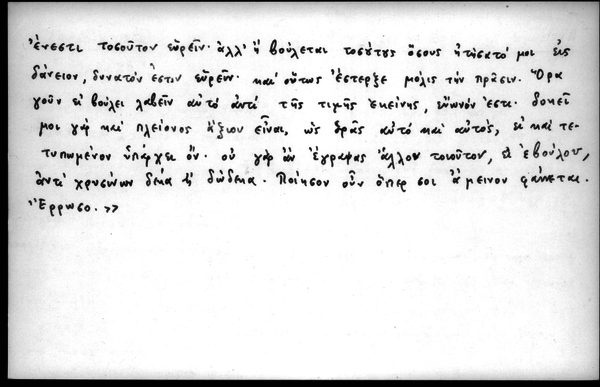 ἔνεστι τοσοῦτον εὑρεῖν· ἀλλ' εἰ βούλεται τοσούτους ὅσους ᾐτήσατό μοι εἰς
δάνειον, δυνατόν ἐστιν εὑρεῖν· καὶ οὕτως ἔστερξε μόλις τὴν πρᾶσιν. Ὅρα
γοῦν εἰ βούλει λαβεῖν αὐτὸ ἀντὶ τῆς τιμῆς ἐκείνης, εὔωνόν ἐστι· δοκεῖ
μοι γὰρ καὶ πλείονος ἄξιον εἶναι, ὡς ὁρᾷς αὐτὸ καὶ αὐτός, εἰ καὶ τε-
τυπωμένον ὑπάρχει ὄν· οὐ γὰρ ἂν ἔγραψας ἄλλον τοιοῦτον, εἰ ἐβούλου,
ἀντὶ χρυσίνων δέκα ἢ δώδεκα. Ποίησον οὖν ὅπερ σοι ἄμεινον φαίνεται.
Ἔρρωσο. »